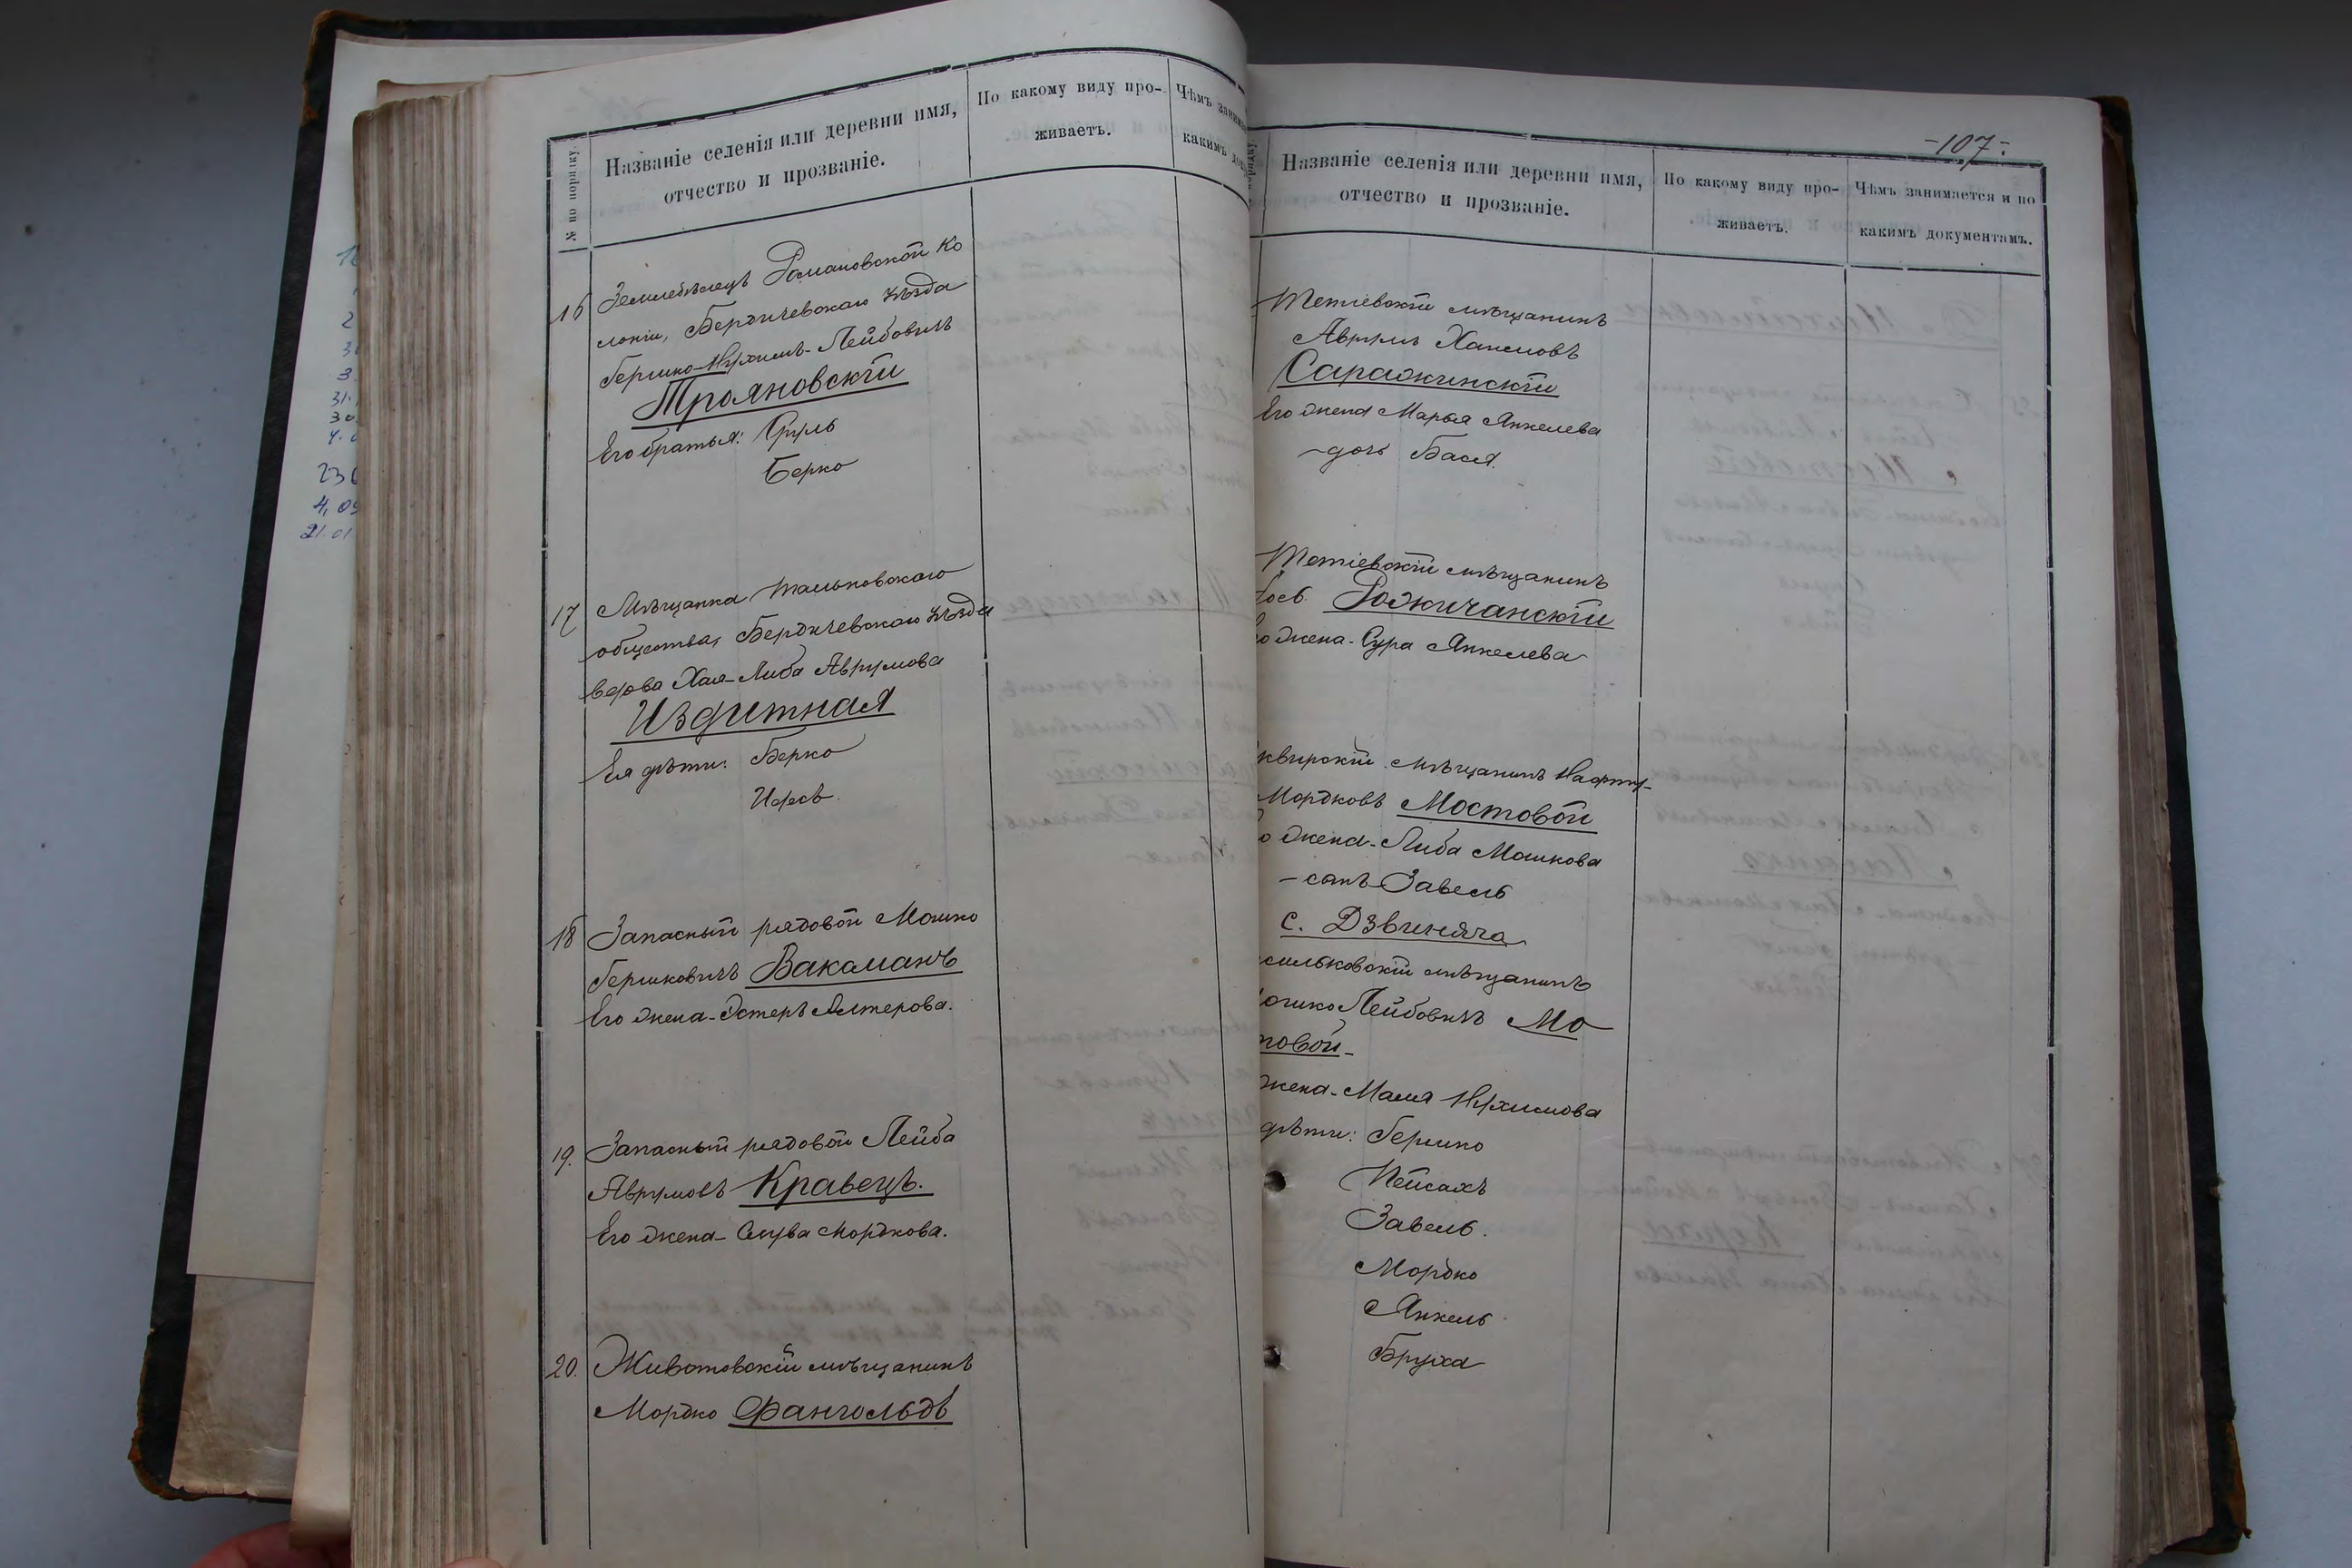 № по порядку.
Названіе селенія или деревни имя,
отчество и прозваніе.
По какому виду про-
живаетъ.
Чѣмъ
какимъ
16 Земледѣлецъ Романовской Ко
лоніи, Бердичевскаго уѣзда
Гершко-Нухимъ-Лейбовичъ
Трояновскій
Его братья: Сруль
Берко
17 Мѣщанка
общества, Бердичевскаго уѣзда
вдова Хая-Либа Аврумова
Издитная
Ея дѣти: Берко
18 Запасный рядовой Мошко
Гершковичъ Ваксманъ
Его жена-Эстеръ Алтерова.
19. Запасный рядовой Лейба
Аврумовъ Кравецъ.
Его жена- Слува Мордкова.
20. Животовскій мѣщанинъ
Мордко Фангольдъ
-107-
Названіе селенія или деревни имя,
отчество и прозваніе.
По какому виду про-
живаетъ.
Чѣмъ занимается и по
какимъ документамъ.
Тетіевскій мѣщанинъ
Аврумъ Хаимовъ
Саражинскій
Его жена Марья Янкелева
-дочь Бася.
Тетіевскій мѣщанинъ
Рожичанскій
жена-Сура Янкелева
квирскій мѣщанинъ Нафту-
Мордковъ Мостовой
жена-Либа Мошкова
-сынъ-Завель
с. Дзвиняча
сильковскій мѣщанинъ
ошко Лейбовичъ Мо
товой-
жена-Маля Нухимова
дѣти: Гершко
Пейсахъ
Завель.
Мордко
Янкель
Бруха